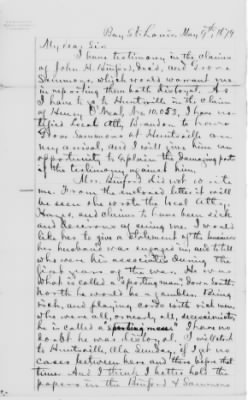 Bay St. Louis, May 9th, 1879
My dear Sir
I have testimony in the claims
of John H. Binford, dec'd, and
Sammons, which would warrant me
in reporting them both disloyal. As
I have to go to Huntsville in the claim
of Henry Neal No. 10,053, I have no-
tified local atty. to have
Sammons at Huntsville on
my arrival, and I will give him an
opportunity to explain the damaging parts
of the testimony against him.
Mrs. Binford did not write
me. From the enclosed letter it will
be seen she wrote the local atty.
and claims to have been sick
and desirous of seeing me. I would
like her to give a statement of the business
her husband was engaged in, and to tell
who were his associates during the
first years of the war. He was
what is called a "sporting man"; down south,
north he would be a gambler. Being
rich, and playing cards with rich men
who were all, or nearly all, secessionists
he is called a "sporting man". I have no
doubt he was disloyal. I will start
to Huntsville, Ala Sunday, if I get no
cases between here and there before that
time. And I think I better hold the
papers in the Binford & Sammons